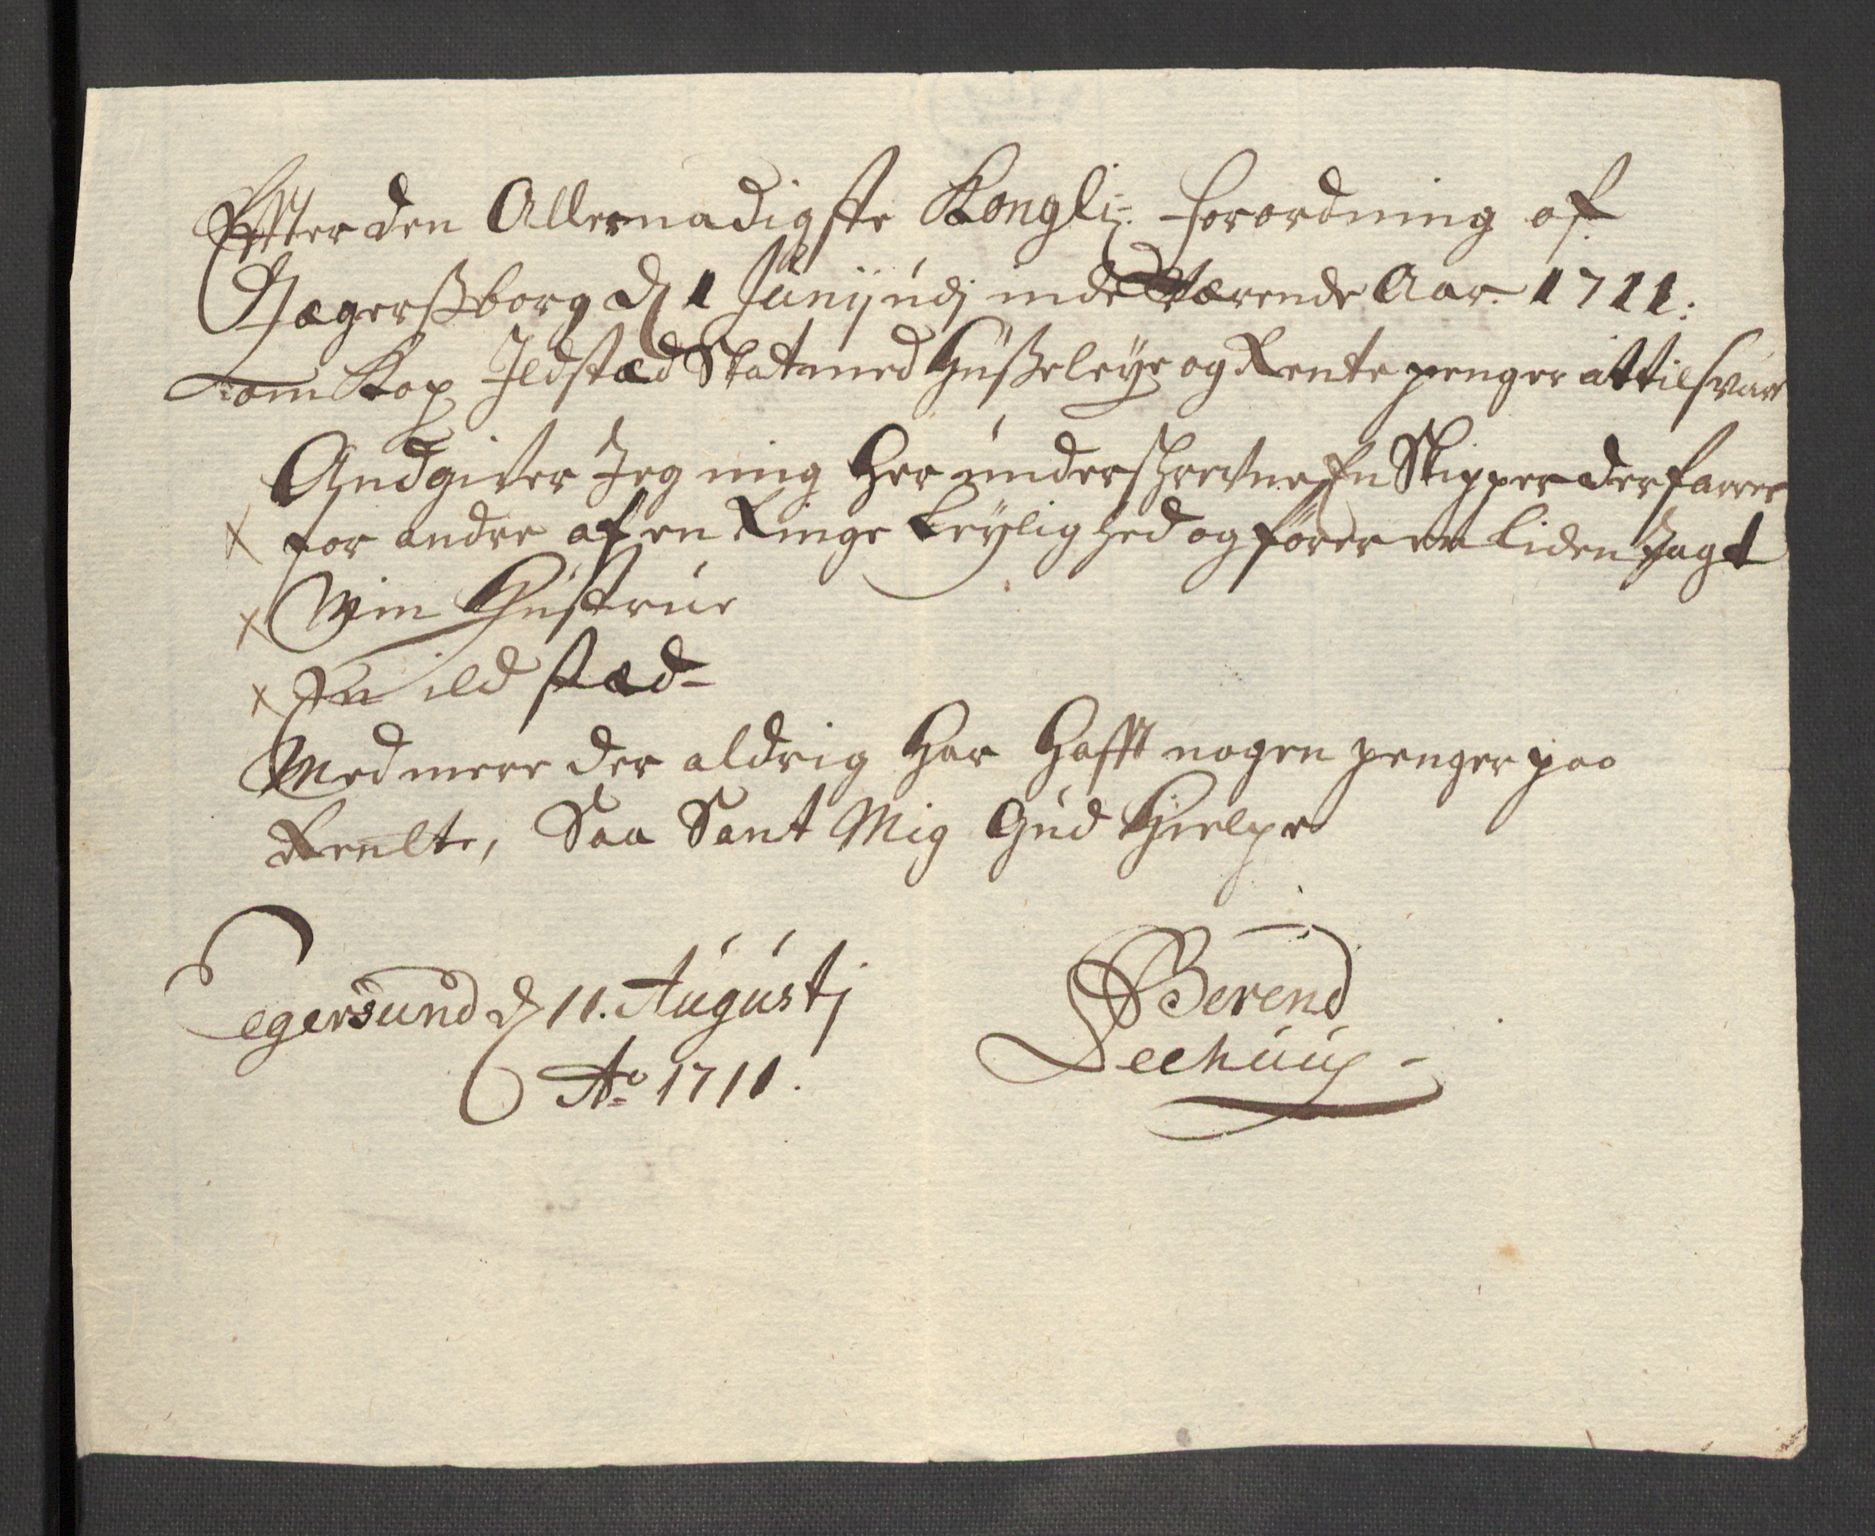 Effter den Allernadigste Kongli: forordning af
Jægerßborg d 1 Junij udj inde Værende Aar 1711:
om Kop Ildstæd Skat med Hußeleye og Rente penger at tilsvare
Andgiver Jeg mig Her underschrefne En Skipper der farrer
x for andre af en Ringe Leylighed og fører en liden Jagt
x Min Hustrue
x En ild stæd
Med mere der aldrig Har Hafft nogen penger paa
Rentte, Saa Sant Mig Gud Hielpe
Egersund d 11. Augustj
Ao 1711.
Berend
Seehuus